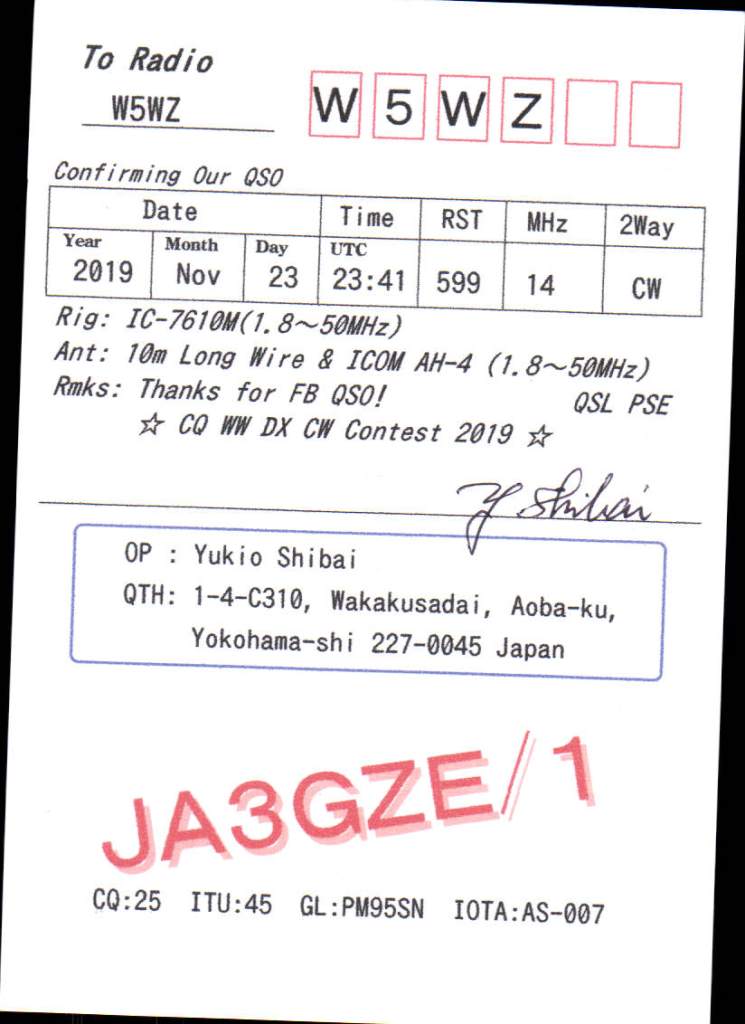 To Radio
W5WZ
W 5 W Z
Confirming Our QSO
Date Time RST MHz 2Way
Year Month Day UTC
2019 Nov 23 23:41 599 14 CW
Rig: IC-7610M(1.8～50MHz)
Ant: 10m Long Wire & ICOM AH-4 (1.8～50MHz)
Rmks: Thanks for FB QSO! QSL PSE
☆ CQ WW DX CW Contest 2019 ☆
Y Shibai
OP : Yukio Shibai
QTH: 1-4-C310, Wakakusadai, Aoba-ku,
Yokohama-shi 227-0045 Japan
JA3GZE/1
CQ:25 ITU:45 GL:PM95SN IOTA:AS-007